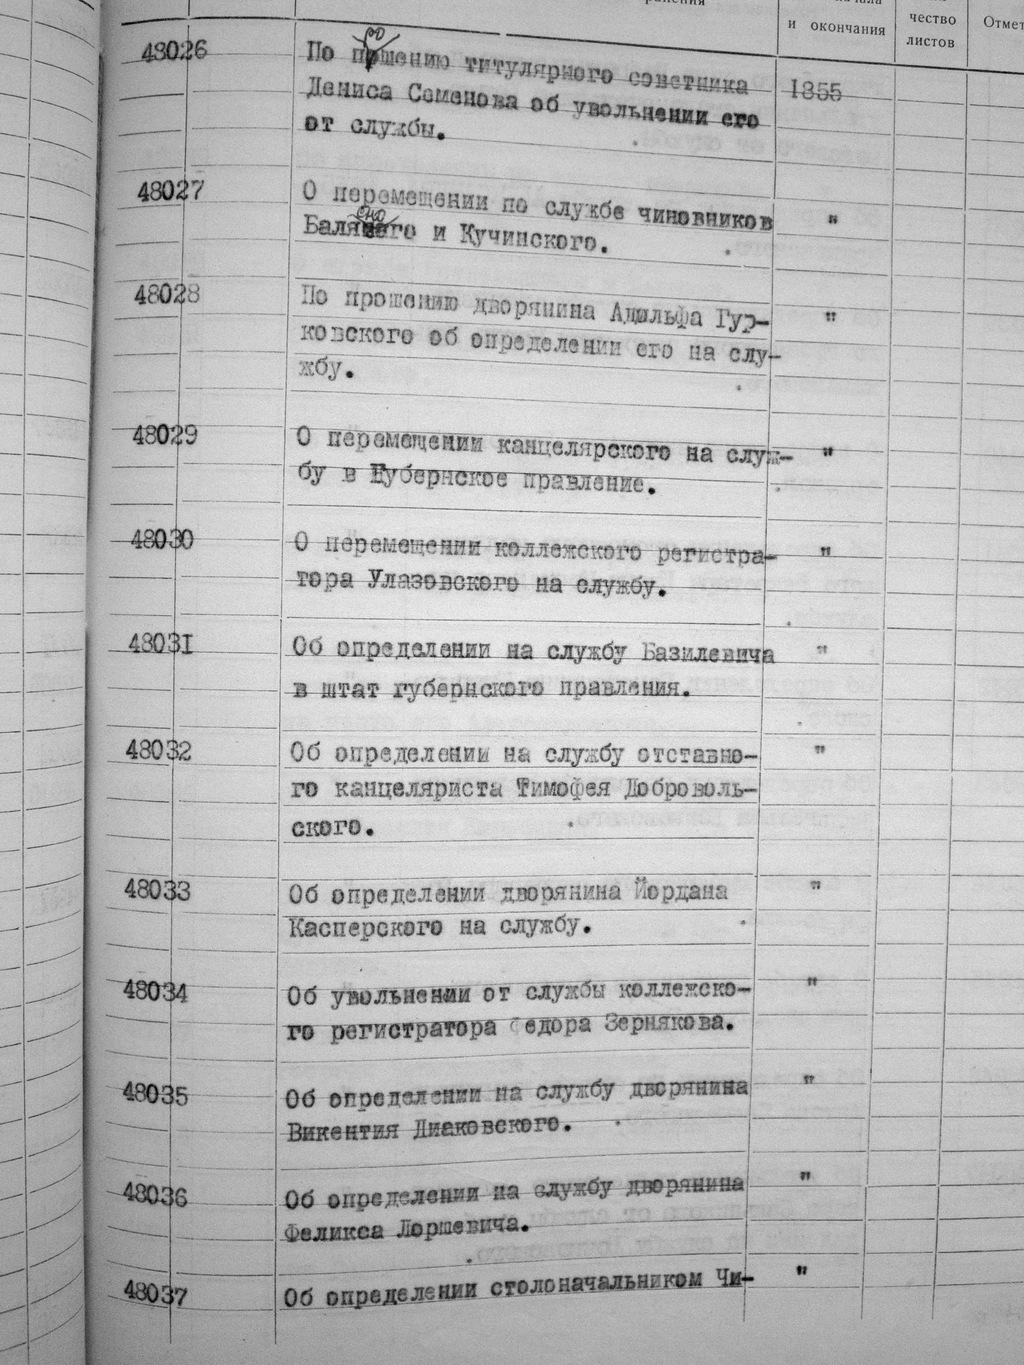 и окончания
чество
листов
Отмет
48026 По прошению титулярного советника 1855
Дениса Семенова об увольнении его
от службы.
48027 О перемещении по службе чиновников "
Балясного и Кучинского.
48028 По прошению дворянина Адольфа Гур- "
ковского об определении его на слу-
жбу.
48029 О перемещении канцелярского на служ- "
бу в Губернское правление.
48030 О перемещении коллежского регистра- "
тора Улазовского на службу.
48031 Об определении на службу Базилевича "
в штат губернского правления.
48032 Об определении на службу отставно- "
го канцеляриста Тимофея Доброволь-
ского.
48033 Об определении дворянина Йордана "
Касперского на службу.
48034 Об увольнении от службы коллежско- "
го регистратора Федора Зернякова.
48035 Об определении на службу дворянина "
Викентия Диаковского.
48036 Об определении на службу дворянина "
Феликса Лоршевича.
48037 Об определении столоначальником Чи- "